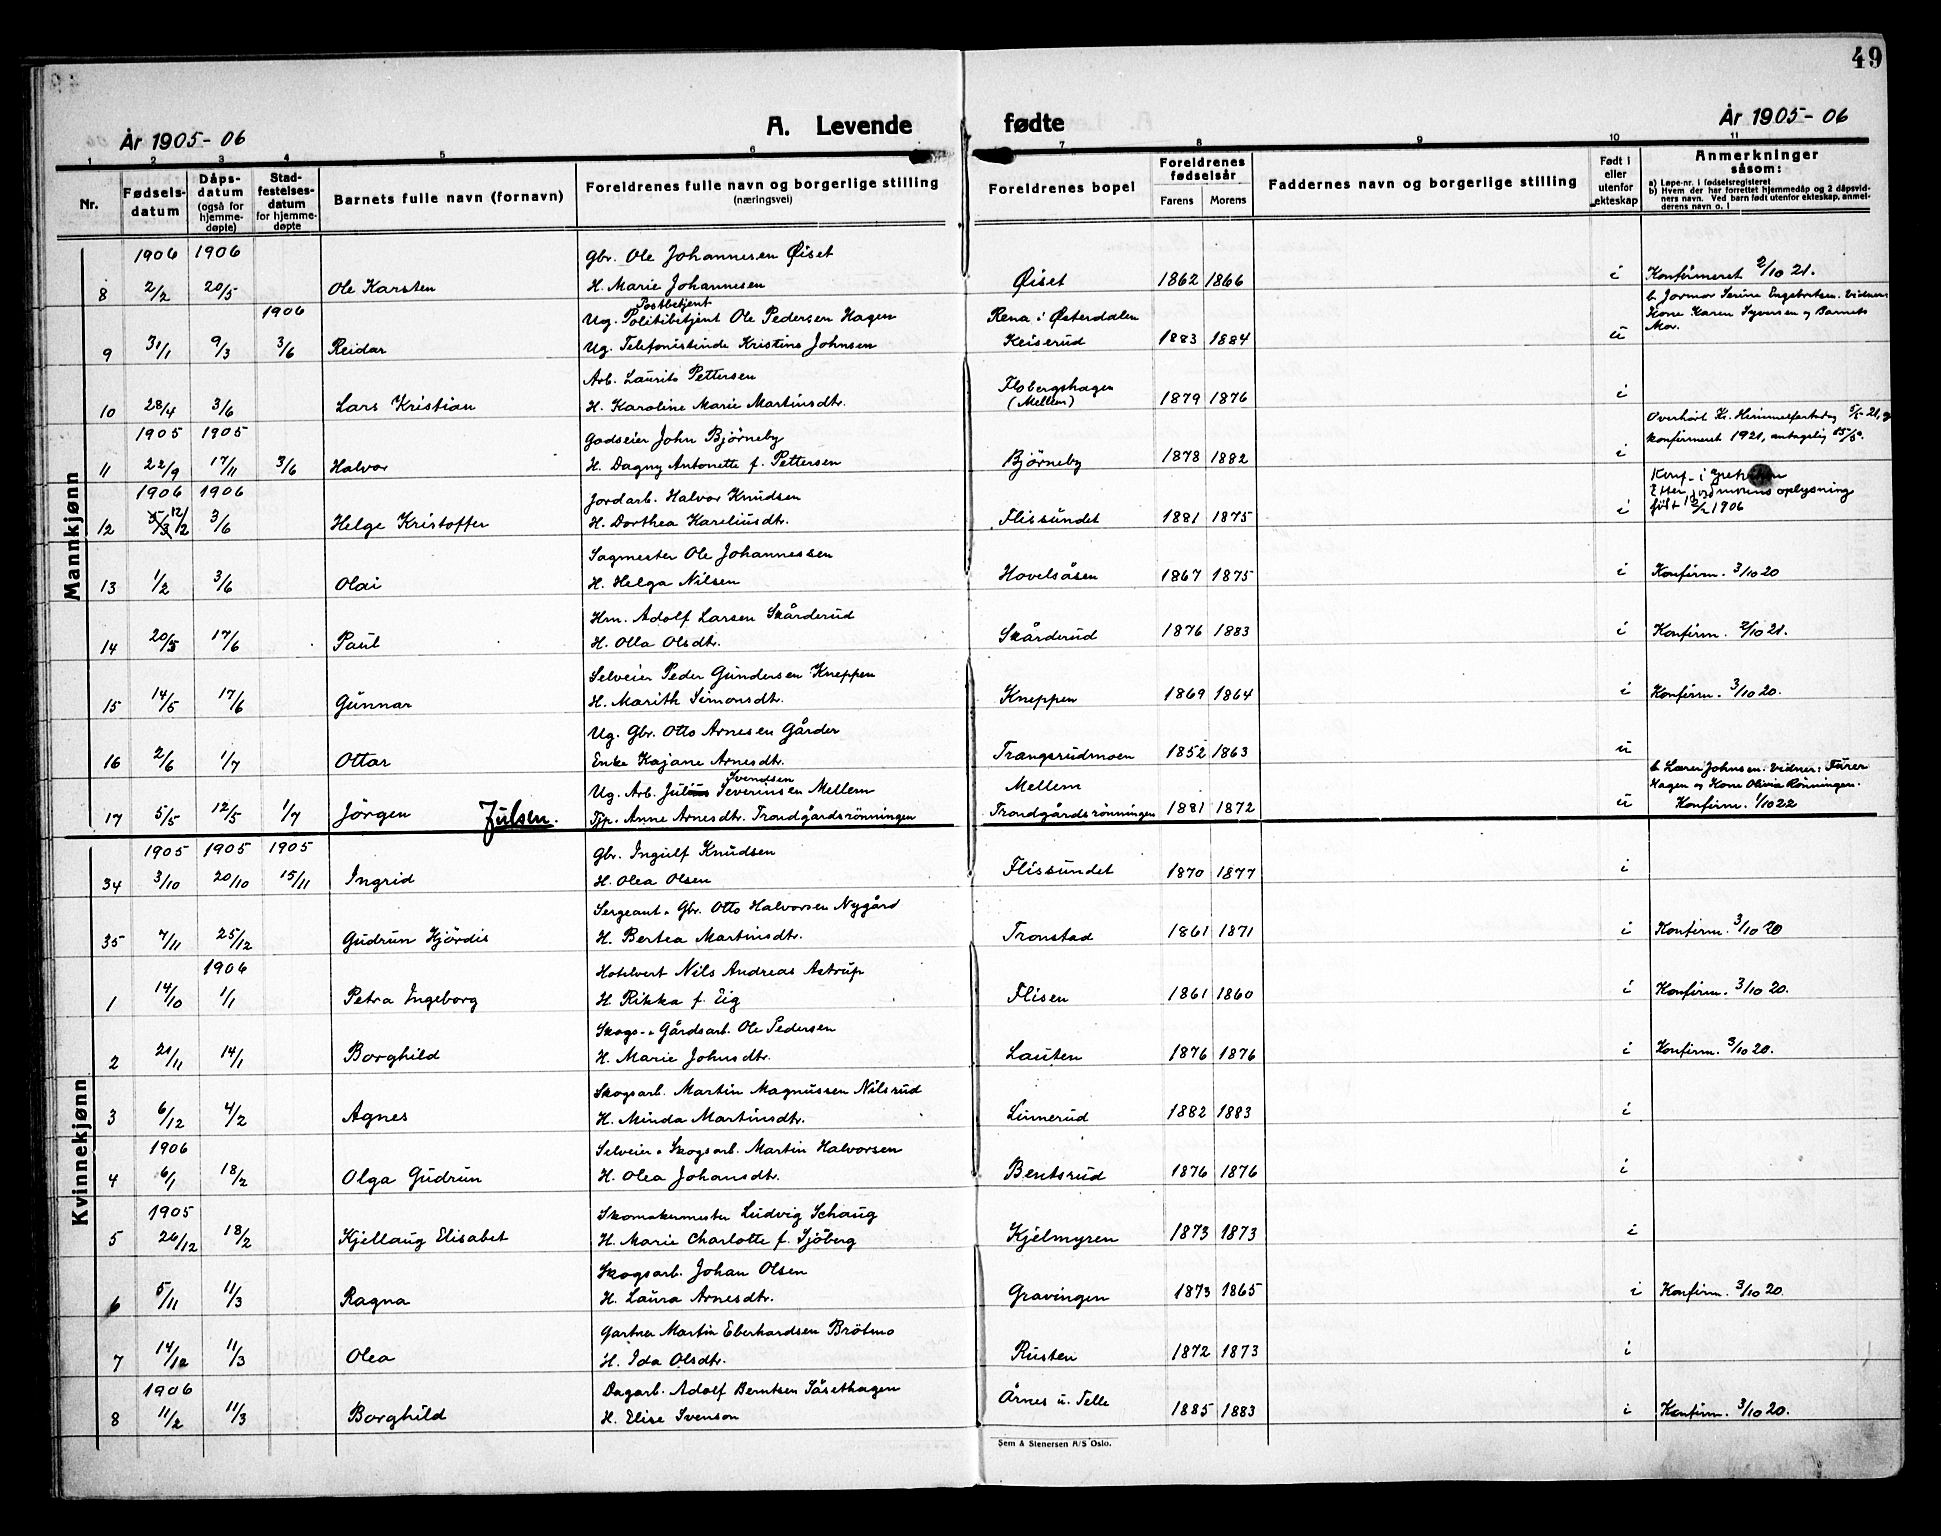 49
År 1905-06 A. Levende fødte År 1905-06
1 2 3 4 5 6 7 8 9 10 11
Nr. Fødsels-datum Dåps-datum (også for hjemme-døpte) Stad-festelses-datum for hjemme-døpte Barnets fulle navn (fornavn) Foreldrenes fulle navn og borgerlige stilling (næringsvei) Foreldrenes bopel Foreldrenes fødselsår Farens Morens Faddernes navn og borgerlige stilling Født i eller utenfor ekteskap Anmerkninger såsom:
a) Løpe-nr. i fødselsregisteret
b) Hvem der har forrettet hjemmedåp og 2 dåpsvid-
ners navn. Ved barn født utenfor ekteskap, anmel-
derens navn o. l
Mannkjønn
1906 1906 Gbr. Ole Johannesen Øiset
8 2/2 20/5 Ole Karsten H. Marie Johannesen Øiset 1862 1866 i Konfirmeret 2/10 21.
Postbetjent
1906 Ug. Politibetjent Ole Pedersen Hagen Rena i Østerdalen
b. Jormor Serine Engebretsen. Vidner:
Kone Karen Syversen og Barnets
Mor.
9 31/1 9/3 3/6 Reidar Ug. Telefonistinde Kristine Johnsen Keiserud 1883 1884 u
Arb. Laurits Pettersen Flobergshagen
10 28/4 3/6 Lars Kristian H. Karoline Marie Martinsdtr. (Mellem) 1879 1876 i
1905 1905 Godseier John Björneby
Overhørt Kr. Himmelfartsdag 5/5-21, og
konfirmeret 1921, antagelig 15/5.
11 22/9 17/11 3/6 Halvor H. Dagny Antonette f. Pettersen Björneby 1878 1882 i
1906 1906 Jordarb. Halvor Knudsen
Konf. i
Efter jordmorens oplysning
født 12/2 1906
12 5/3 12/2 3/6 Helge Kristoffer H. Dorthea Kareliusdtr. Flissundet 1881 1875 i
Sagmester Ole Johannessen
13 1/2 3/6 Olai H. Helga Nilsen Hovelsåsen 1867 1875 i Konfirm. 3/10 20
Hm. Adolf Larsen Skårderud
14 20/5 17/6 Paul H. Olla Olsdtr. Skårderud 1876 1883 i Konfirm. 2/10 21.
Selveier Peder Gundersen Kneppen
15 14/5 17/6 Gunnar H. Marith Simonsdtr. Kneppen 1869 1864 i Konfirm. 3/10 20.
Ug. Gbr. Otto Arnesen Gårder
16 2/6 1/7 Ottar Enke Kajane Arnesdtr. Trangsrudmoen 1852 1863 u
Svendsen
Ug. Arb. Julius Severinsen Mellem Mellem
b. Lærer Johnsen. Vidner: Furer
Hagen og Kone Olivia Rönningen.
17 5/5 12/5 1/7 Jörgen Julsen. Tjp. Anne Arnesdtr. Trondgårdsrönningen Trondgårdsrönningen 1881 1872 u Konfirm. 1/10 22
Kvinnekjønn
1905 1905 1905 Gbr. Ingulf Knudsen
34 3/10 20/10 15/11 Ingrid H. Olea Olsen Flissundet 1870 1877 i
Sergeant o Gbr. Otto Halvorsen Nygård
35 7/11 25/12 Gudrun Hjördis H. Bertea Martinsdtr. Tronstad 1861 1871 i Konfirm. 3/10 20
1906 Hotelvert Nils Andreas Astrup
1 14/10 1/1 Petra Ingeborg H. Rikka f. Eig Flisen 1861 1860 i Konfirm. 3/10 20.
Skogs- o Gårdsarb. Ole Pedersen
2 21/11 14/1 Borghild H. Marie Johnsdtr. Lauten 1876 1876 i Konfirm. 3/10 20.
Skogsarb. Martin Magnussen Nilsrud
3 6/12 4/2 Agnes H. Minda Martinsdtr. Linnerud 1882 1883 i
1906 Selveier o Skogsarb. Martin Halvorsen
4 6/1 18/2 Olga Gudrun H. Olea Johansdtr. Bentsrud 1876 1876 i
1905 Skomakermester Ludvig Schaug
5 26/12 18/2 Kjellaug Elisabet H. Marie Charlotte f. Sjöberg Kjelmyren 1873 1873 i
Skogsarb. Johan Olsen
6 5/11 11/3 Ragna H. Laura Arnesdtr. Gravingen 1873 1865 i Konfirm. 3/10 20.
Gartner Martin Eberhardsen Brötmo
7 14/12 11/3 Olea H. Ida Olsdtr. Rusten 1872 1873 i
1906 Dagarb. Adolf Berntsen Såsethagen Årnes u. Telle
8 11/2 11/3 Borghild H. Elise Svenson 1885 1883 i Konfirm. 3/10 20.
Sem & Stenersen A/S Oslo.